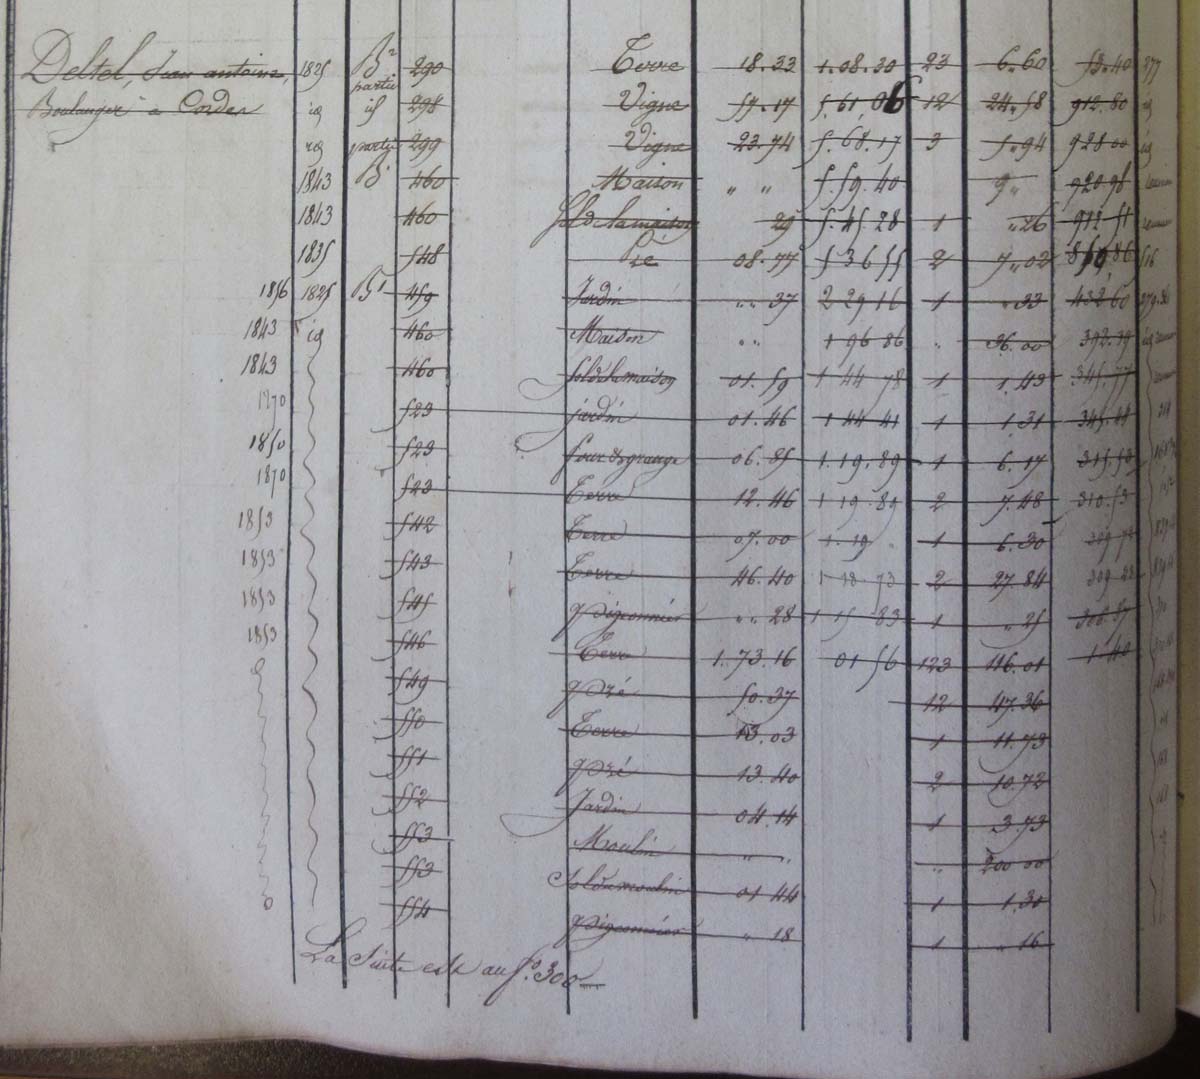 Deltel, Jean antoine, 1825 B² partie 290 Terre 18.33 1.08.30 23 6.60 877
Boulanger à Cordes id id 298 Vigne 59.17 5.61,06 12 24.58 912.80 id
id partie 299 Vigne 23.74 5.68.17 3 5.94 928.00 id
1843 B 460 Maison " " 5.59.40 9 " 920.98
1843 460 Sol de la maison 29 5.45.28 1 " 26 912.51
1835 548 Pré 08.77 5 36 55 2 7.02 516
1856 1825 B¹ 459 Jardin " " 37 2 29 16 1 " 33 432,60
1843 id 460 Maison " " 1 96 86 " 36.00 392.79 id
1843 460 Sol de la maison 01.59 1 44 78 1 1.43 345.77
1870 523 jardin 01.46 1 44 41 1 1.31 345.44
1850 523 four & grange 06.85 1.19.89 1 6.17
1870 523 Terre 12.46 1 19.89 2 7.48 310.53
1853 542 Terre 07.00 1.19 " 1 6.30
1853 543 Terre 46.40 1 18.73 2 27.84 309.22
1853 545 Pigeonnier " " 28 1 15 83 1 " 25 306.57
1853 546 Terre 1.73.16 01 56 123 116.01 1.40
549 Pré 50.37 12 47.36
550 Terre 13.03 1 11.73
551 Pré 13.40 2 10.72
552 Jardin 04.14 1 3.73
553 Moulin " " " 200.00
553 Sol du moulin 01 44 1 1.30
554 Pigeonnier " 18 1 " 16
La Suite est au f.° 300